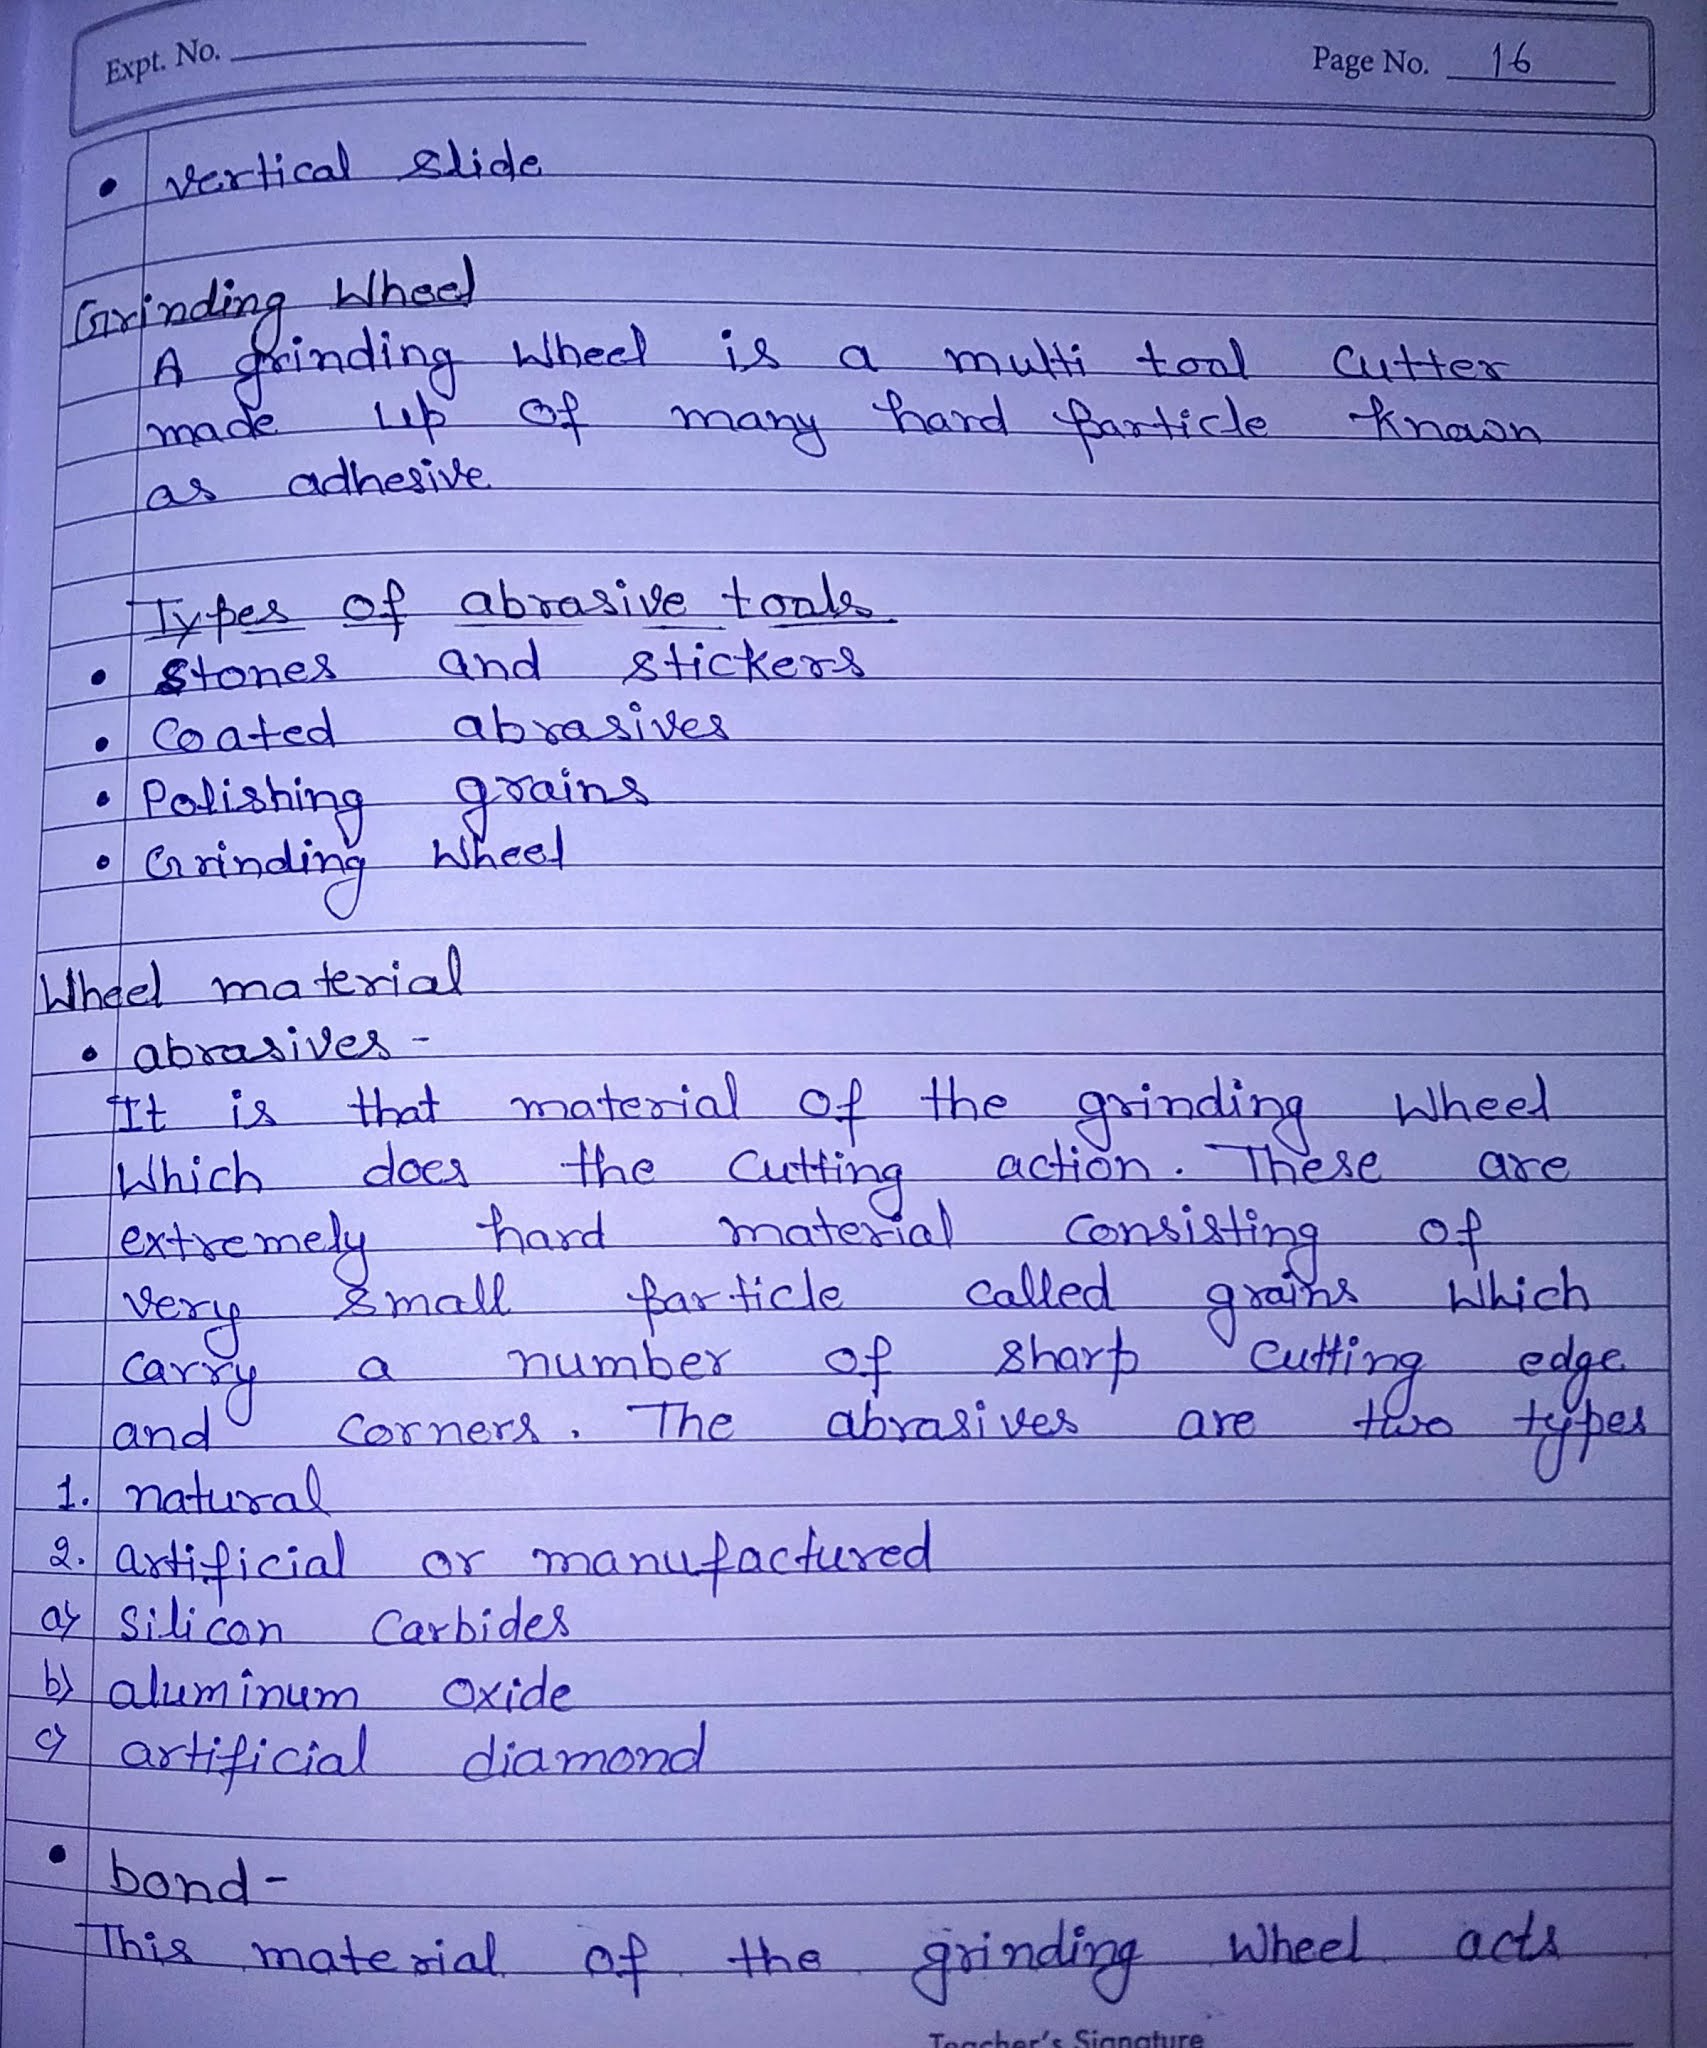 Expt. No.
Page No. 16
• vertical slide
Grinding Wheel
A grinding wheel is a multi tool cutter
made up of many hard particle known
as adhesive
Types of abrasive tools
• Stones and stickers
• Coated abrasives
• Polishing grains
• Grinding Wheel
Wheel material
• abrasives -
It is that material of the grinding wheel
Which does the cutting action. These are
extremely hard material consisting of
very small particle called grains which
carry a number of sharp cutting edge
and corners. The abrasives are two types
1. natural
2. artificial or manufactured
a) silicon carbides
b) aluminum oxide
c) artificial diamond
• bond -
This material of the grinding wheel acts
Teacher's Signature